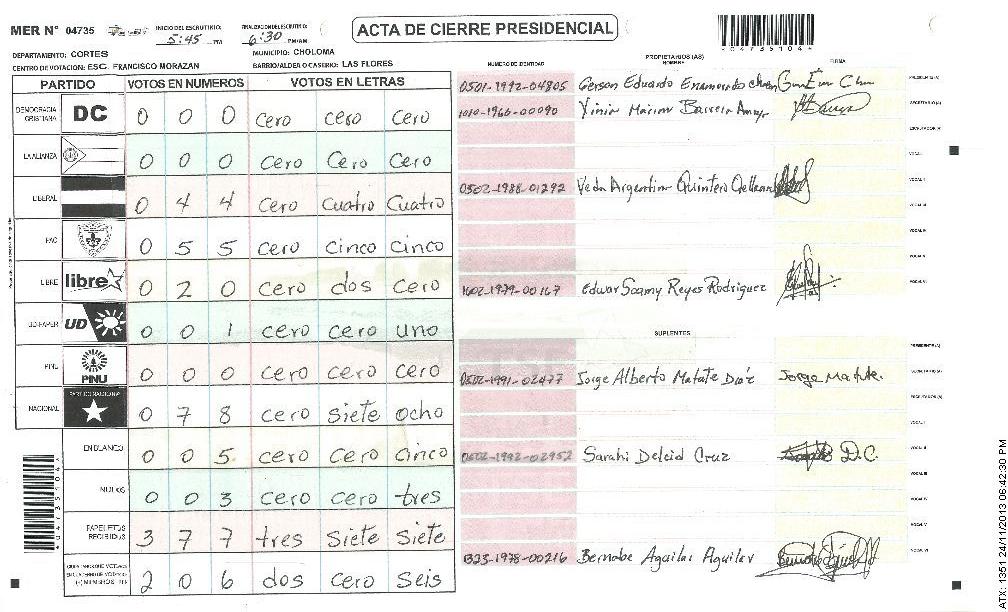 MER N° 04735 INICIO DEL ESCRUTINIO: 5:45 PM FINALIZACION DEL ESCRUTINIO: 6:30 PM/AM
ACTA DE CIERRE PRESIDENCIAL
*04735104*
DEPARTAMENTO: CORTES MUNICIPIO: CHOLOMA
CENTRO DE VOTACION: ESC. FRANCISCO MORAZAN BARRIO/ALDEA O CASERIO: LAS FLORES
PARTIDO VOTOS EN NUMEROS VOTOS EN LETRAS
DEMOCRACIA CRISTIANA DC 0 0 0 cero cero cero
LA ALIANZA 0 0 0 cero Cero Cero
LIBERAL 0 4 4 cero Cuatro Cuatro
PAC 0 5 5 cero Cinco cinco
LIBRE libre 0 2 0 cero dos Cero
UD-FAPER UD 0 0 1 cero cero uno
PINU PINU 0 0 0 cero cero cero
NACIONAL PARTIDO NACIONAL 0 7 8 cero siete ocho
EN BLANCO 0 0 5 cero cero cinco
NULOS 0 0 3 cero cero tres
PAPELETAS RECIBIDAS 3 7 7 tres Siete Siete
2 0 6 dos cero Seis
PROPIETARIOS (AS)
NUMERO DE IDENTIDAD NOMBRE FIRMA
0501-1992-04805 Gerson Eduardo Enamorado PRESIDENTE (A)
1010-1966-00090 Yinia Marina Barrera SECRETARIO (A)
ESCRUTADOR (A)
VOCAL I
0502-1988-01292 Argentina Quintero VOCAL II
VOCAL III
VOCAL IV
VOCAL V
1602-1979-00167 Edwar Scamy Reyes Rodriguez VOCAL VI
SUPLENTES
PRESIDENTE (A)
0502-1991-02477 Jorge Alberto Matute Jorge Matute. SECRETARIO (A)
ESCRUTADOR (A)
VOCAL I
0502-1992-02952 Sarahi Deleid Cruz D.C. VOCAL II
VOCAL III
VOCAL IV
VOCAL V
1323-1978-00216 Bernabe Aguilar Aguilar VOCAL VI
*04735104*
ATX: 1351 24/11/2013 06:42:30 PM